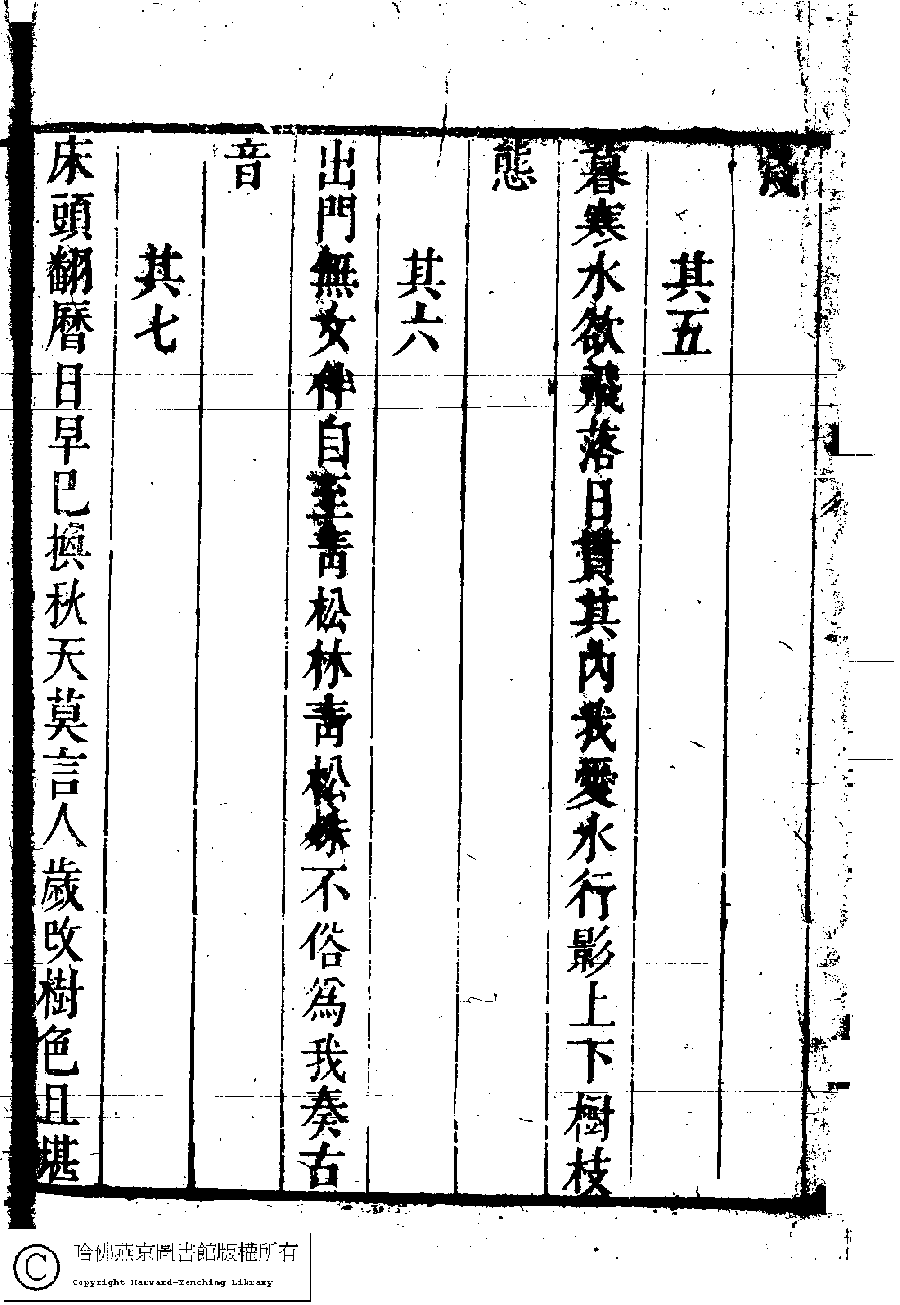 其五
暮寒水欲凝落日貫其內我愛水行影上下樹枝
態
其六
出門無女伴自至青松林青松殊不俗爲我奏古
音
其七
床頭翻曆日早已換秋天莫言人歲改樹色且堪
哈佛燕京圖書館版權所有
Copyright Harvard-Yenching Library